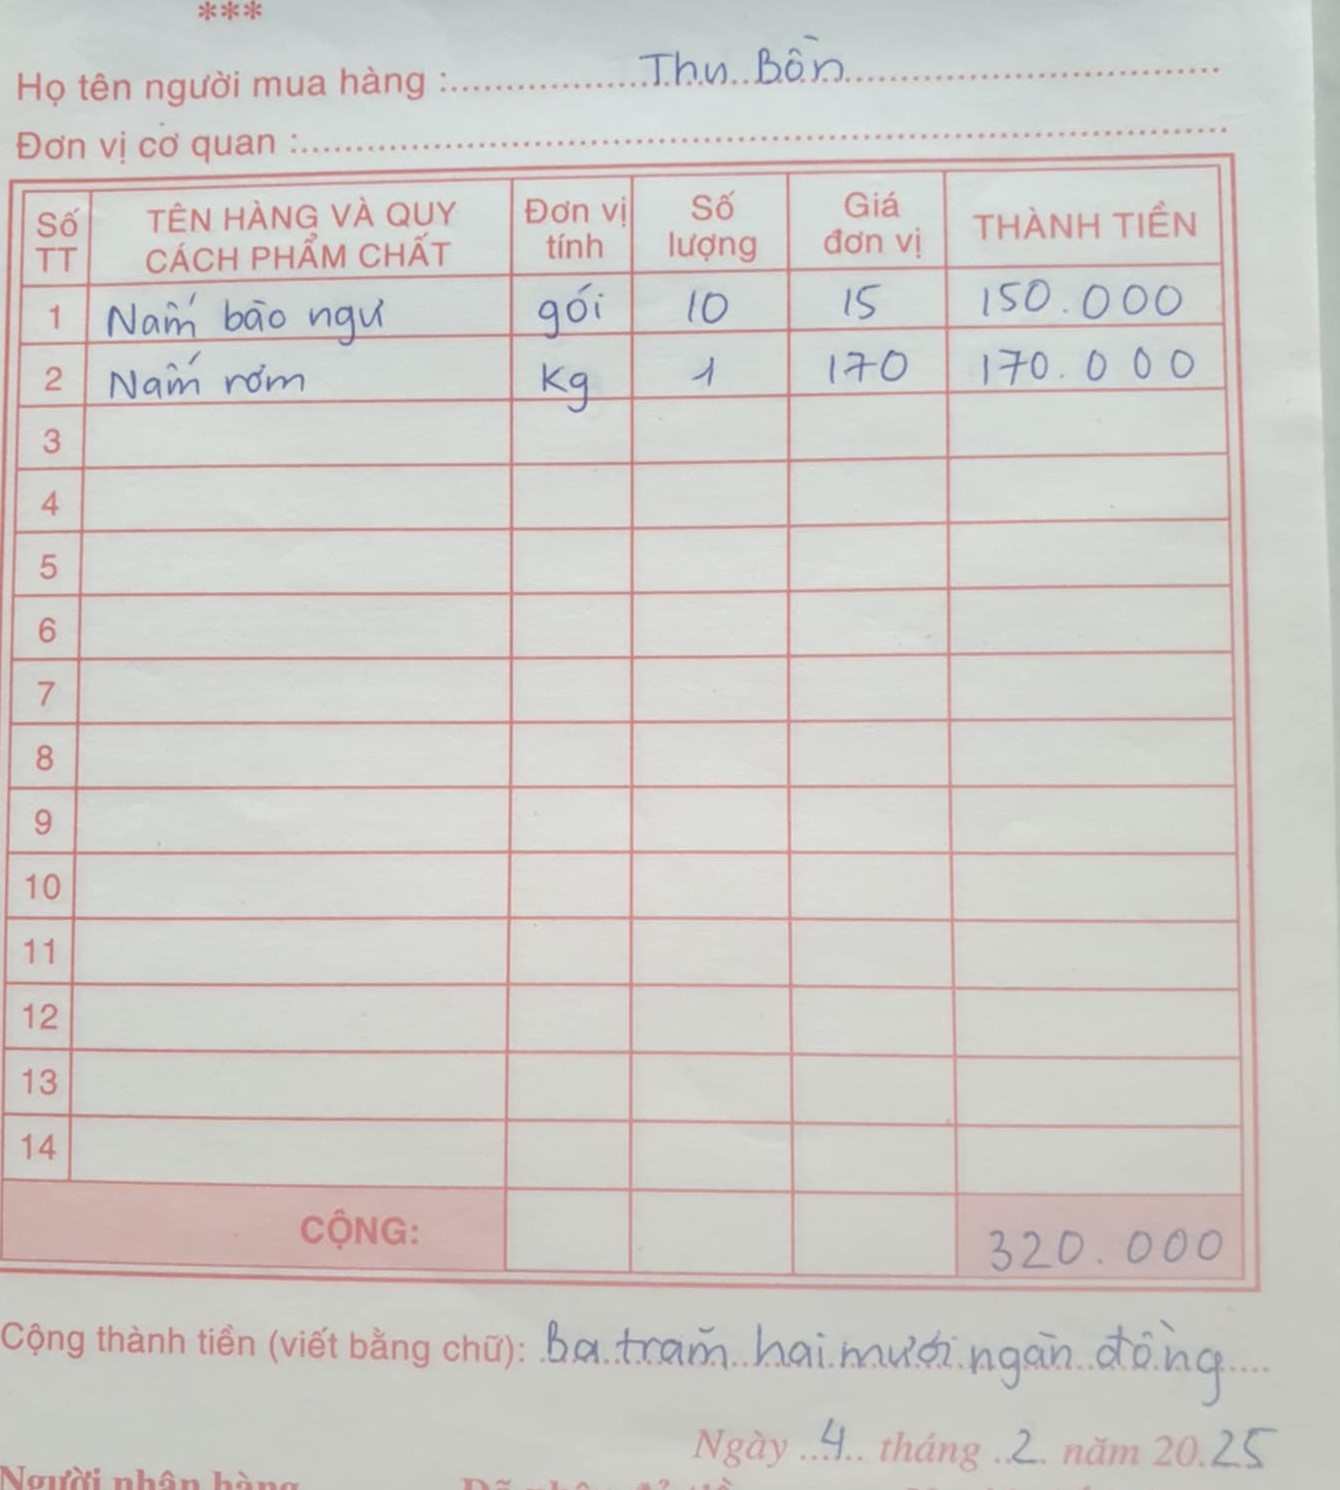 ***
Họ tên người mua hàng : Thu Bồn
Đơn vị cơ quan :
Số TT TÊN HÀNG VÀ QUY CÁCH PHẨM CHẤT Đơn vị tính Số lượng Giá đơn vị THÀNH TIỀN
1 Nấm bào ngư gói 10 15 150.000
2 Nấm rơm Kg 1 170 170.000
3
4
5
6
7
8
9
10
11
12
13
14
CỘNG: 320.000
Cộng thành tiền (viết bằng chữ): Ba trăm hai mươi ngàn đồng
Ngày 4 tháng 2 năm 2025
Người nhận hàng